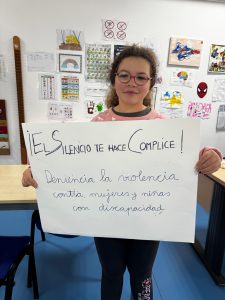 ¡EL SILENCIO TE HACE CÓMPLICE!
Denuncia la violencia
contra mujeres y niñas
con discapacidad